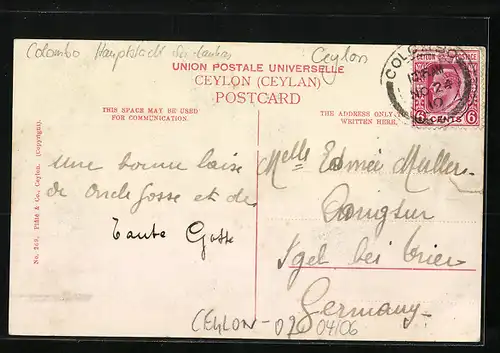 Colombo Hauptstadt Sri Lankas
Ceylon
UNION POSTALE UNIVERSELLE
CEYLON (CEYLAN)
POSTCARD
THIS SPACE MAY BE USED
FOR COMMUNICATION.
THE ADDRESS ONLY
WRITTEN HERE.
COLOMBO
NO 24
6 CENTS 6
Une bonne
de Oncle Gosse et de
Tante Gosse
Melle Edmée Muller
Igel bei Trier
Germany
No. 368, Plâté & Co., Ceylon. (Copyright).
CEYLON-07 04/06